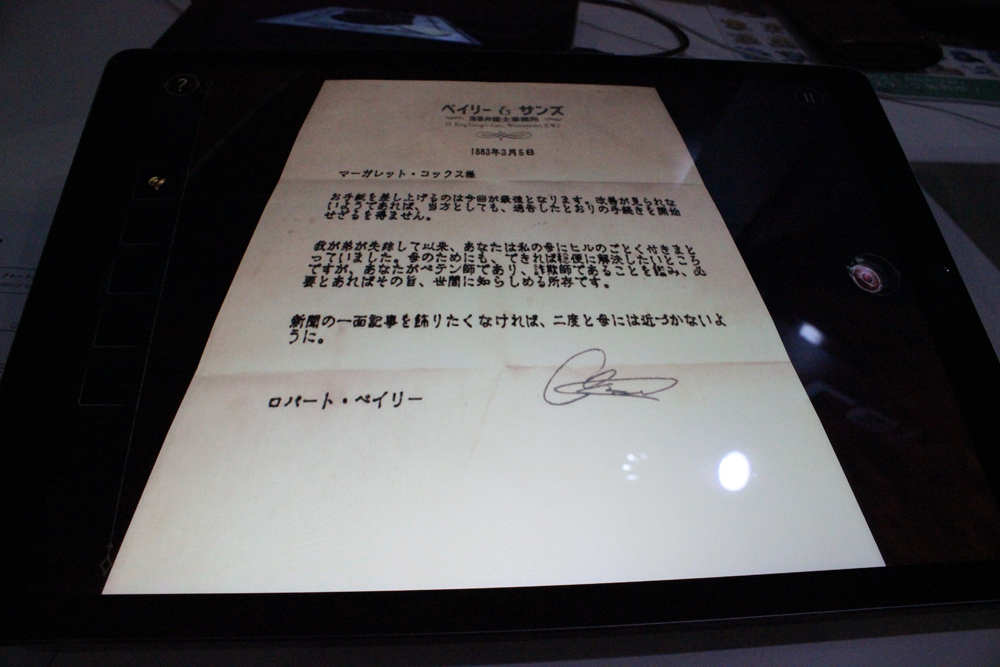 ベイリー & サンズ
法弁護士事務所
1883年3月5日
マーガレット・コックス様
お手紙を差し上げるのは今回が最後となります。改善が見られな
いようであれば、当方としても、通告したとおりの手続きを開始
せざるを得ません。
我が弟が失踪して以来、あなたは私の母にヒルのごとく付きまと
っていました。母のためにも、できれば穏便に解決したいところ
ですが、あなたがペテン師であり、詐欺師であることを鑑み、必
要とあればその旨、世間に知らしめる所存です。
新聞の一面記事を飾りたくなければ、二度と母には近づかないよ
うに。
ロバート・ベイリー
?